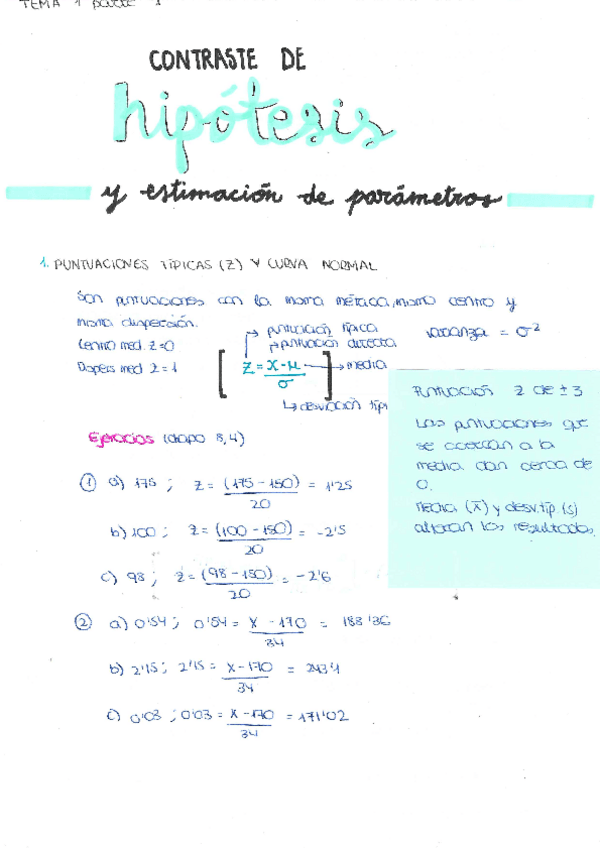 TEMA 1 parte 1
CONTRASTE DE
hipótesis
y estimación de parámetros
1. PUNTUACIONES TÍPICAS (Z) Y CURVA NORMAL
Son puntuaciones con la misma métrica, mismo centro y
misma dispersión.
Centro med. z=0
Dispers med z=1
puntuación típica
puntuación directa
Z = X - μ
σ
media
desviación típi
varianza = σ²
Puntuación z de ± 3
Las puntuaciones que
se acercan a la
media dan cerca de
0.
Media (x̄) y desv. típ. (s)
alteran los resultados.
Ejercicios (diapo 3,4)
① a) 175 ; z = (175 - 150) = 1'25
20
b) 100 ; z = (100 - 150) = -2'5
20
c) 98 ; z = (98 - 150) = -2'6
20
② a) 0'54 ; 0'54 = x - 170 = 188'36
34
b) 2'15 ; 2'15 = x - 170 = 243'1
34
c) 0'03 ; 0'03 = x - 170 = 171'02
34